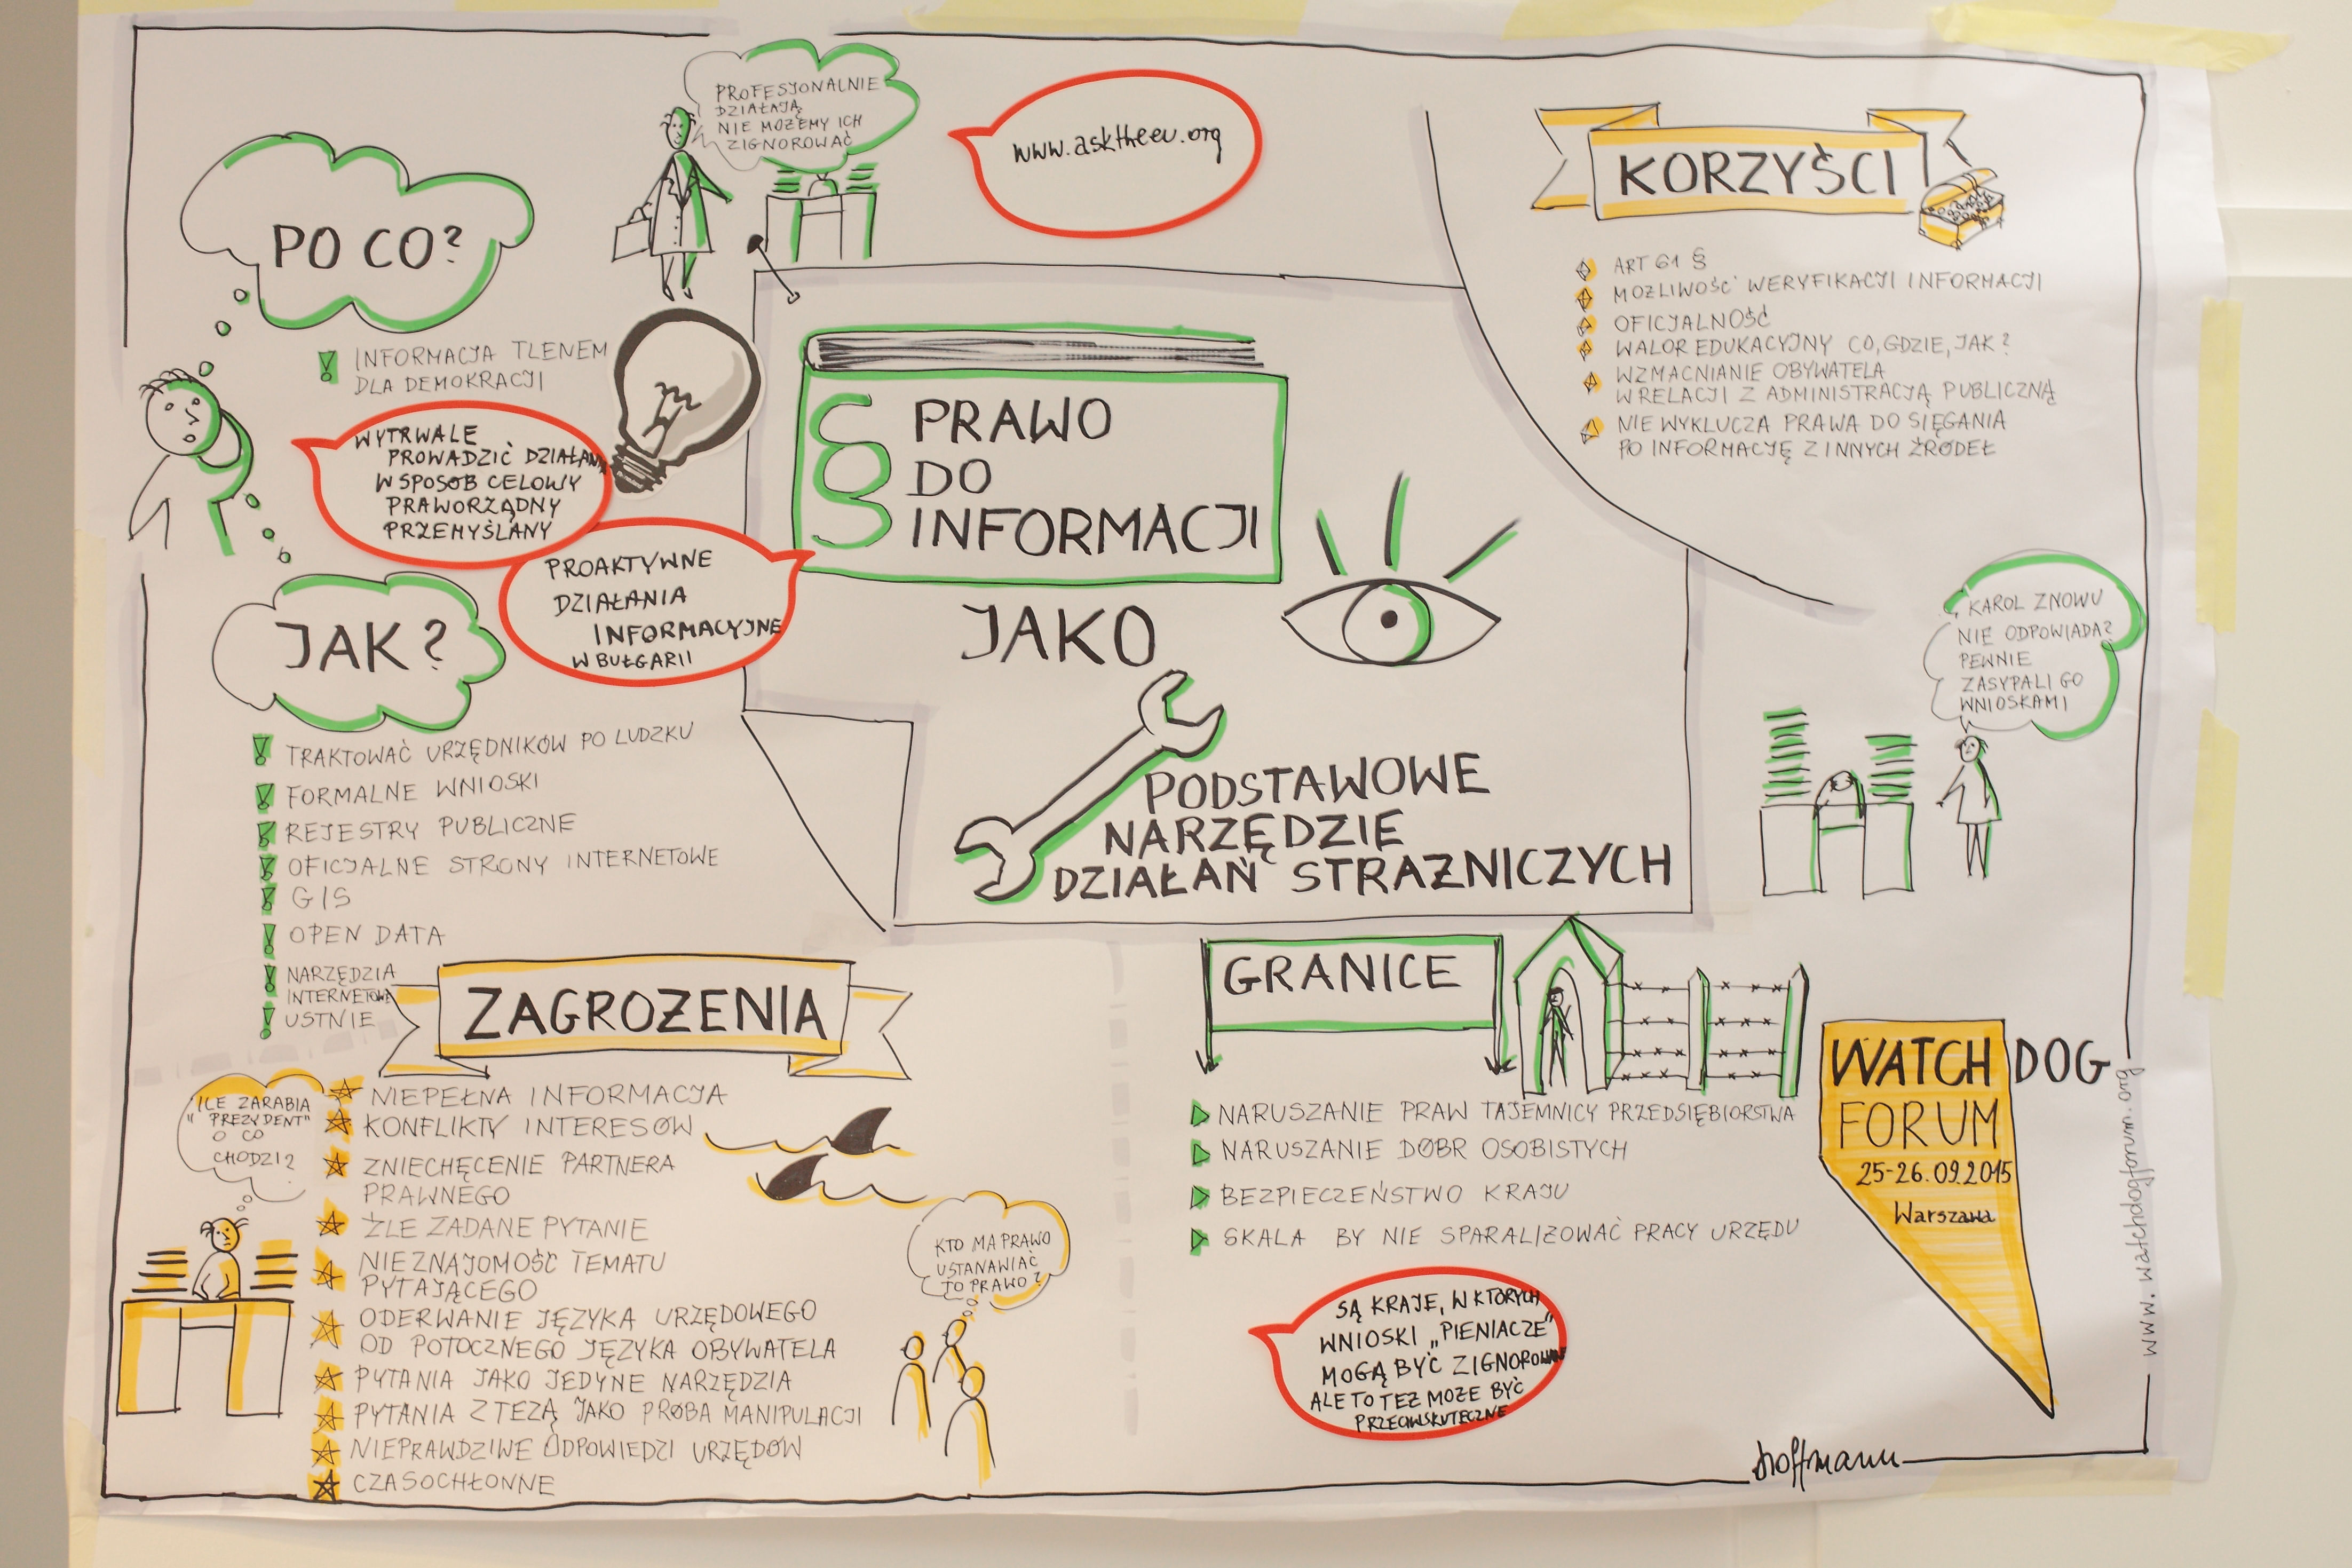 PROFESJONALNIE
DZIAŁAJĄ
NIE MOŻEMY ICH
ZIGNOROWAĆ
www.asktheeu.org
KORZYŚCI
ART 61 §
MOŻLIWOŚĆ WERYFIKACJI INFORMACJI
OFICJALNOŚĆ
WALOR EDUKACYJNY CO, GDZIE, JAK?
WZMACNIANIE OBYWATELA
W RELACJI Z ADMINISTRACJĄ PUBLICZNĄ
NIE WYKLUCZA PRAWA DO SIĘGANIA
PO INFORMACJĘ Z INNYCH ŹRÓDEŁ
PO CO?
INFORMACJA TLENEM
DLA DEMOKRACJI
WYTRWALE
PROWADZIĆ DZIAŁANIA
W SPOSÓB CELOWY
PRAWORZĄDNY
PRZEMYŚLANY
PROAKTYWNE
DZIAŁANIA
INFORMACYJNE
W BUŁGARII
§ PRAWO
DO
INFORMACJI
JAKO
PODSTAWOWE
NARZĘDZIE
DZIAŁAŃ STRAŻNICZYCH
KAROL ZNOWU
NIE ODPOWIADA?
PEWNIE
ZASYPALI GO
WNIOSKAMI
JAK?
TRAKTOWAĆ URZĘDNIKÓW PO LUDZKU
FORMALNE WNIOSKI
REJESTRY PUBLICZNE
OFICJALNE STRONY INTERNETOWE
GIS
OPEN DATA
NARZĘDZIA
INTERNETOWE
USTNIE
ZAGROŻENIA
ILE ZARABIA
"PREZYDENT"
O CO
CHODZI?
NIEPEŁNA INFORMACJA
KONFLIKTY INTERESÓW
ZNIECHĘCENIE PARTNERA
PRAWNEGO
ŹLE ZADANE PYTANIE
NIEZNAJOMOŚĆ TEMATU
PYTAJĄCEGO
ODERWANIE JĘZYKA URZĘDOWEGO
OD POTOCZNEGO JĘZYKA OBYWATELA
PYTANIA JAKO JEDYNE NARZĘDZIA
PYTANIA Z TEZĄ JAKO PRÓBA MANIPULACJI
NIEPRAWDZIWE ODPOWIEDZI URZĘDÓW
CZASOCHŁONNE
KTO MA PRAWO
USTANAWIAĆ
TO PRAWO?
GRANICE
NARUSZANIE PRAW TAJEMNICY PRZEDSIĘBIORSTWA
NARUSZANIE DÓBR OSOBISTYCH
BEZPIECZEŃSTWO KRAJU
SKALA BY NIE SPARALIŻOWAĆ PRACY URZĘDU
SĄ KRAJE, W KTÓRYCH
WNIOSKI „PIENIACZE"
MOGĄ BYĆ ZIGNOROWANE
ALE TO TEŻ MOŻE BYĆ
PRZECIWSKUTECZNE
WATCH DOG
FORUM
25-26.09.2015
Warszawa
www.watchdogforum.org
hoffmann